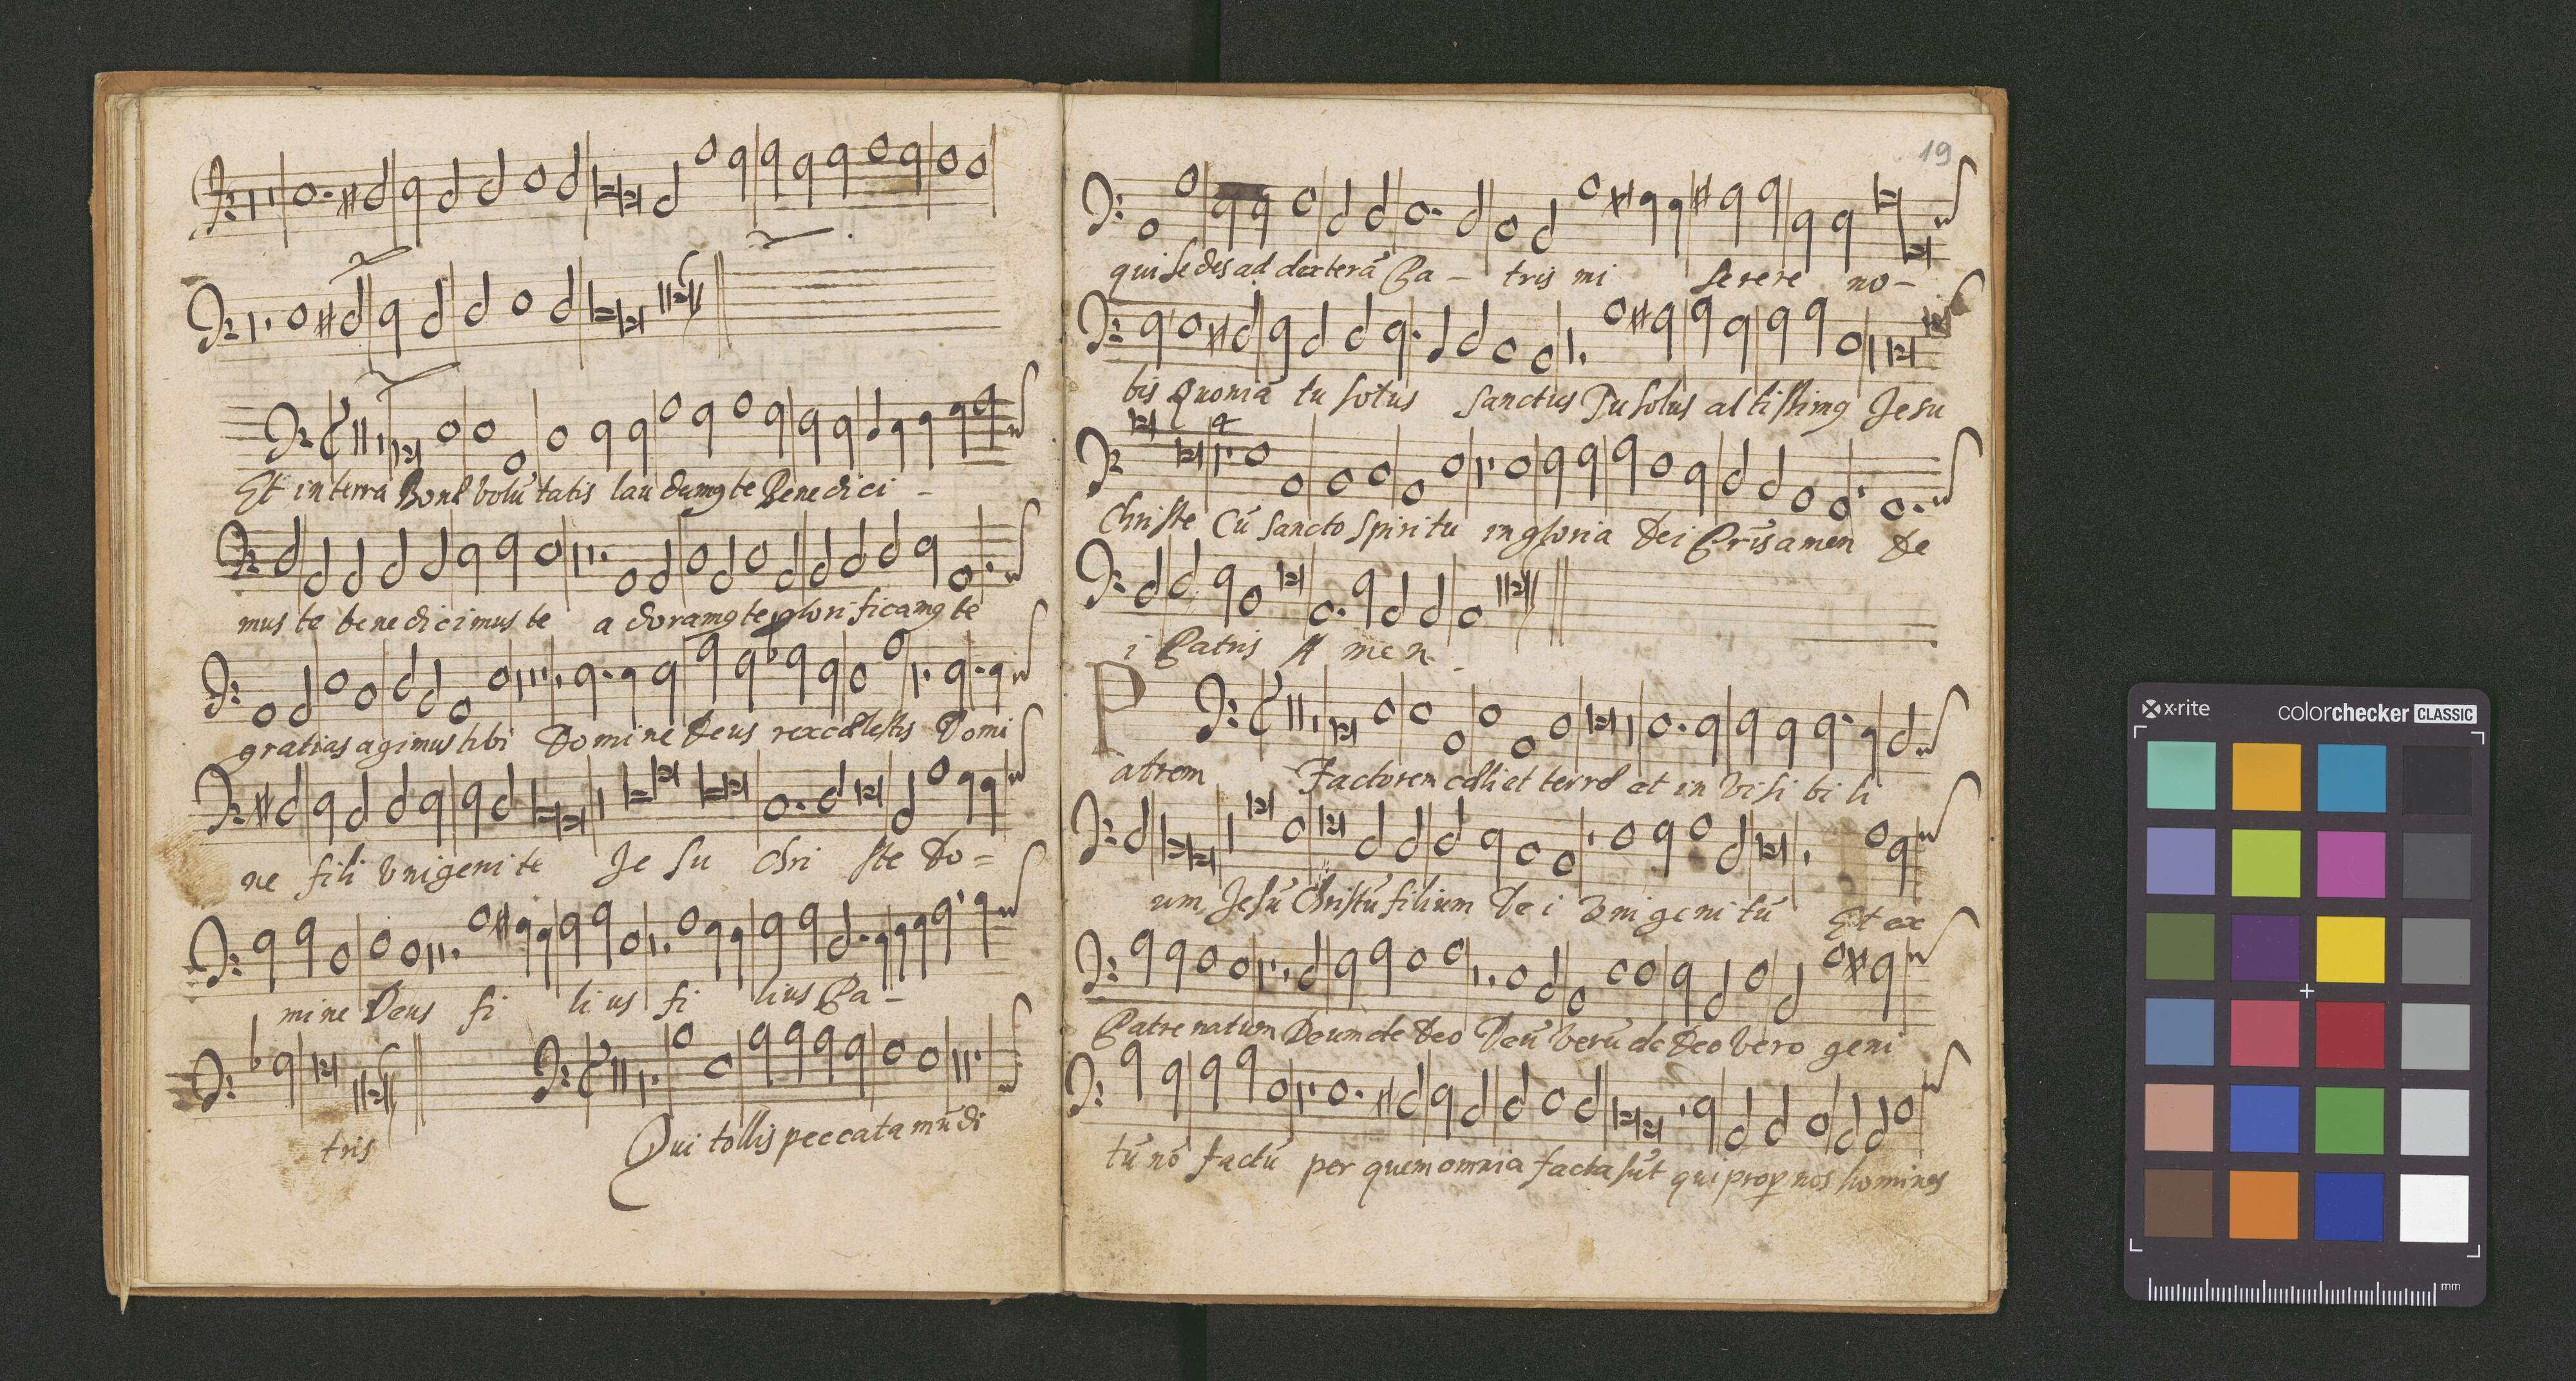 Et in terra Bone volū tatis lau damꝯ te Benedici -
mus te benedicimus te a doramꝯ te glorificamꝯ te
gratias agimus tibi Domine Deus rex cælestis Domi
ne fili Vnigenite Je su Chri ste Do=
mine Deus fi li us fi lius Pa -
tris Qui tollis peccata mūdi
19
qui sedes ad dexterā Pa - tris mi serere no -
bis Quoniā tu solus Sanctus Tu solus altissimꝯ Jesu
4
Christe Cū Sancto Spiritu in gloria Dei Pr̄is amen De
i Patris A men
Patrem Factorem cæli et terræ et in visi bi li
um Jesū Christū filium De i Vnigenitū Et ex
Patre natum Deum de Deo Deū verū de Deo vero geni
tū nō factū per quem omnia facta sūt qui prop nos homines
x·rite
colorchecker CLASSIC
mm